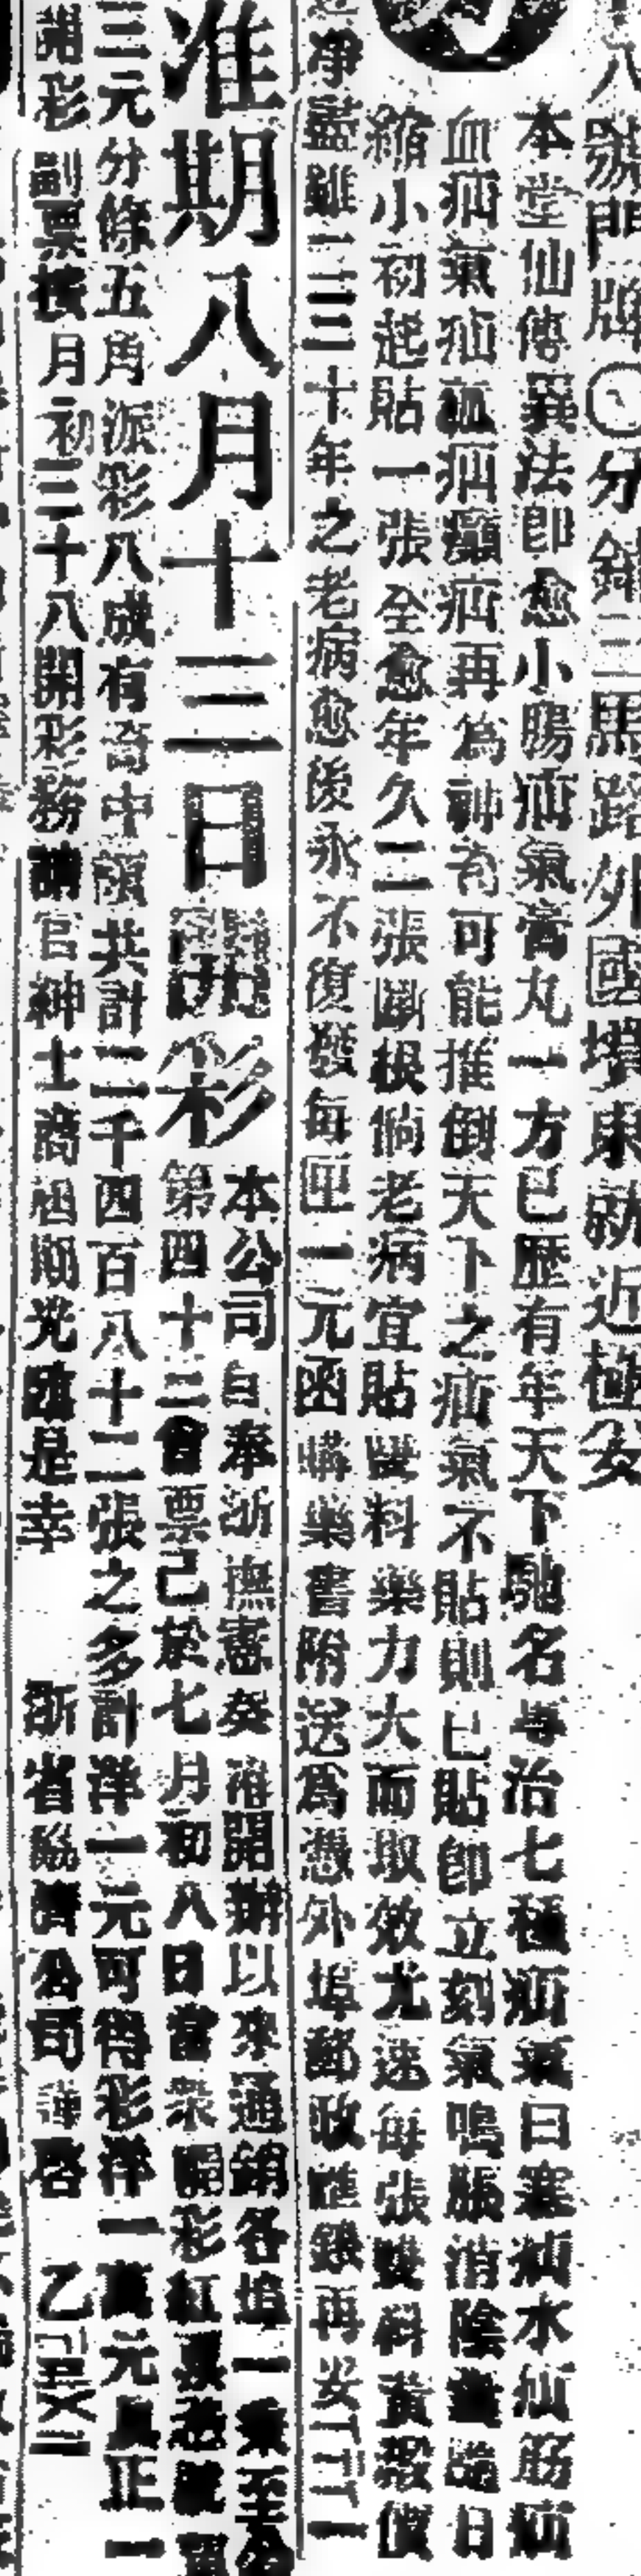 八號門牌〇分鋪三馬路外國墳東就近極安
本堂仙傳異法即愈小腸疝氣膏丸一方已歷有年天下馳名専治七種疝氣曰寒疝水疝筋疝
血疝氣疝狐疝癩疝再為神奇可能推倒天下之疝氣不貼則已貼即立刻氣鳴脹消陰囊日
縮小初起貼一張全愈年久二張斷根倘老病宜貼雙料藥力大而取效尤速每張雙料黃價
淨盡雖二三十年之老病愈後永不復發每匣一元函購藥書附送為憑外埠郵政匯銀再安
准期八月十三日開彩
本公司自奉浙撫憲奏准開辦以來通銷各埠一秉至公
第四十三會票已於七月初八日當衆開彩紅票單
三元分條五角派彩八成有奇中頭共計二千四百八十二張之多計洋一元可得彩洋一萬元真正一
開彩副票按月初三十八開彩務請官紳士商惠顧光臨是幸 浙省協濟公司謹啓 乙